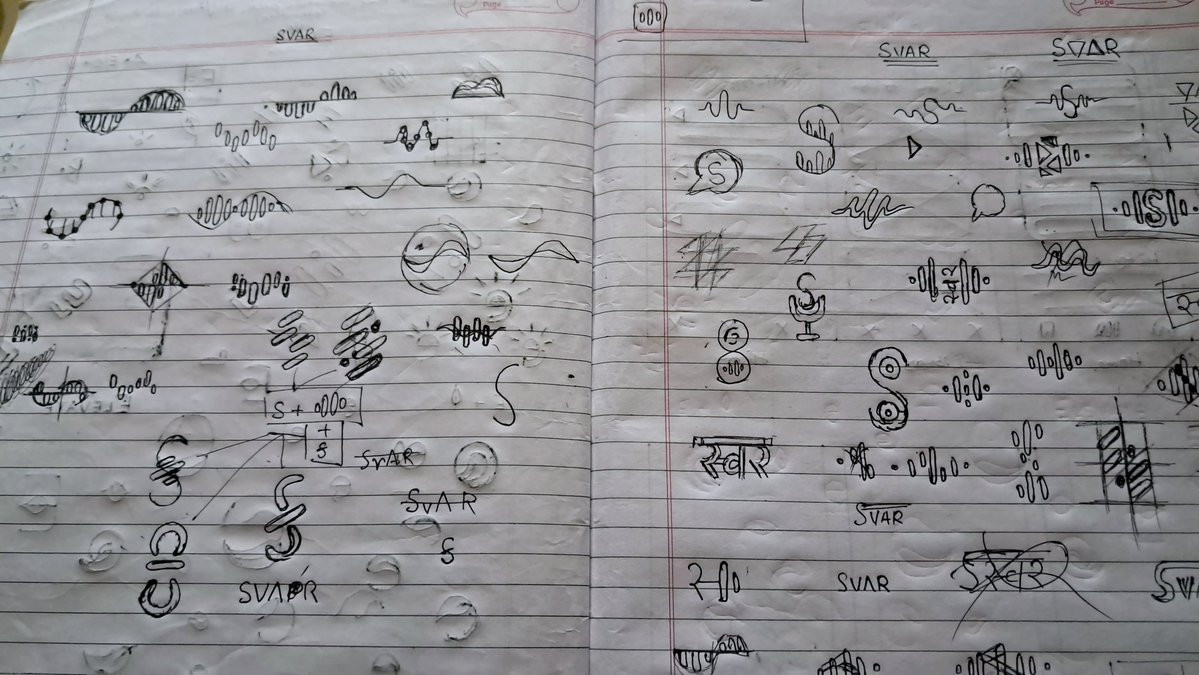 Page
SVAR
S +
+
SVAR
SVAR
SVAPR
Page
SVAR
S▽ΔR
S
S
S
स्वर
SVAR
SVAR
स्वर